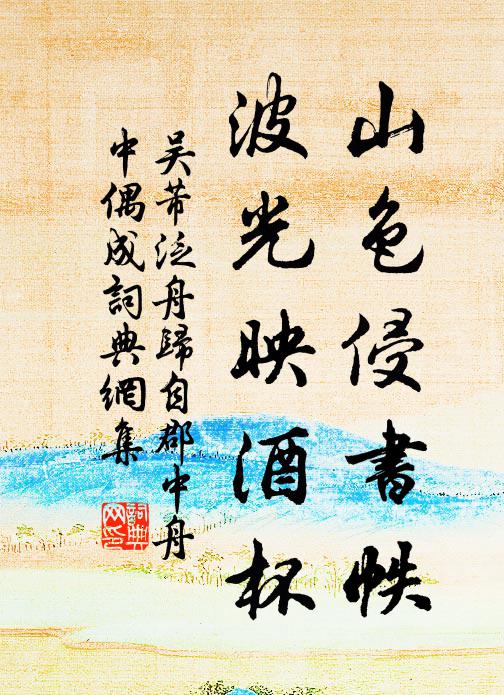 山色侵書帙
波光映酒杯
吴芾泛舟歸自郡中舟
中偶成詞典網集
詞典
网印